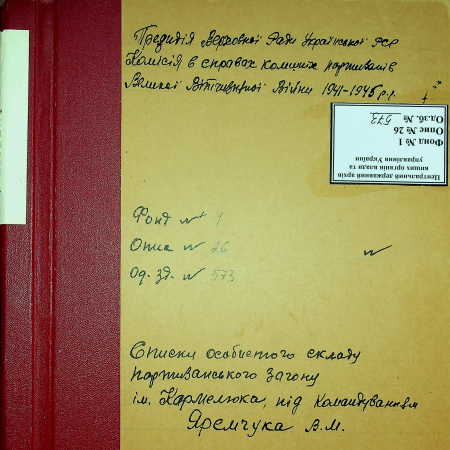 Президія Верховної Ради Української РСР
Комісія в справах колишніх партизанів
Великої Вітчизняної Війни 1941-1945 р.р.
Центральний державний архів
вищих органів влади та
управління України
Фонд № 1
Опис № 26
Од.зб. № 573
Фонд № 1
Опис № 26
Од. зб. № 573
Списки особистого складу
партизанського загону
ім. Кармелюка, під командуванням
Яремчука В.М.